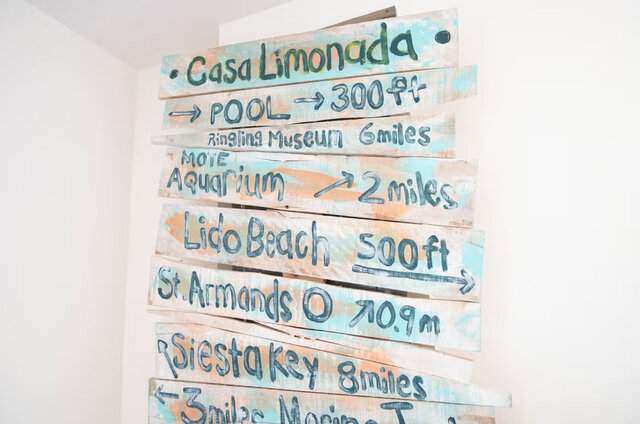 • Casa Limonada •
→ POOL → 300ft
Ringling Museum 6miles
MOTE
Aquarium ↗ 2miles
Lido Beach 500ft →
St. Armands O ↗ 0.9m
Siesta Key 8miles
← 3miles